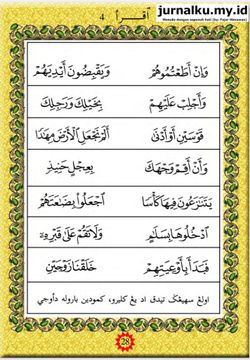 jurnalku.my.id
Menulis dengan sepenuh hati (by: Fajar Wirawan)
4 اقرأ
وَإِنْ أَطَعْتُمُوهُمْ وَيَقْبِضُونَ أَيْدِيَهُمْ
وَأَجْلِبْ عَلَيْهِمْ بِخَيْلِكَ وَرَجِلِكَ
قَوْسَيْنِ أَوْ أَدْنَىٰ أَلَمْ نَجْعَلِ الْأَرْضَ مِهَٰدًا
وَأَنْ أَقِمْ وَجْهَكَ بِعِجْلٍ حَنِيذٍ
يَتَنَٰزَعُونَ فِيهَا كَأْسًا اجْعَلُوا بِضَٰعَتَهُمْ
ادْخُلُوهَا بِسَلَٰمٍ وَلَا تَقُمْ عَلَىٰ قَبْرِهِ
فَبَدَأَ بِأَوْعِيَتِهِمْ خَلَقْنَا زَوْجَيْنِ
اولڠ سهيڠݢ تيدق اد يڠ كليرو، كمودين باروله داوجي
28